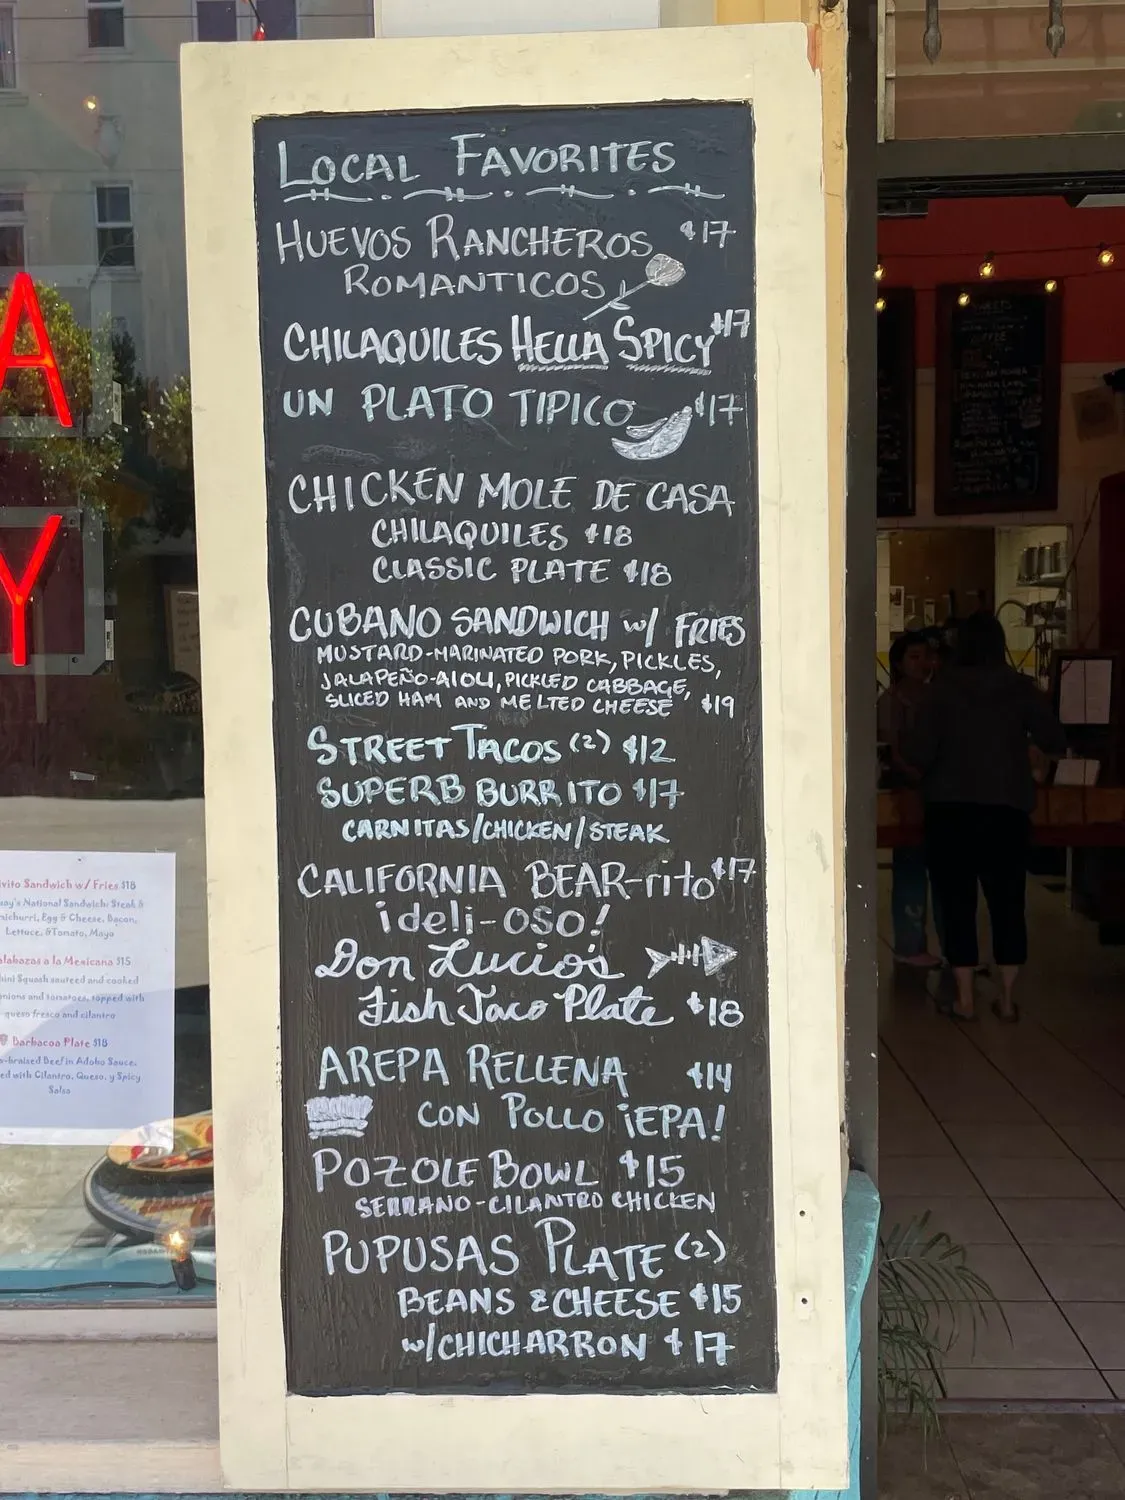 LOCAL FAVORITES
HUEVOS RANCHEROS $17
ROMANTICOS
CHILAQUILES HELLA SPICY $17
UN PLATO TIPICO $17
CHICKEN MOLE DE CASA
CHILAQUILES $18
CLASSIC PLATE $18
CUBANO SANDWICH w/ FRIES
MUSTARD-MARINATED PORK, PICKLES,
JALAPEÑO-AIOLI, PICKLED CABBAGE,
SLICED HAM AND MELTED CHEESE $19
STREET TACOS (2) $12
SUPERB BURRITO $17
CARNITAS/CHICKEN/STEAK
CALIFORNIA BEAR-rito $17
¡deli-oso!
Don Lucio's
Fish Taco Plate $18
AREPA RELLENA $14
CON POLLO ¡EPA!
POZOLE BOWL $15
SERRANO-CILANTRO CHICKEN
PUPUSAS PLATE (2)
BEANS & CHEESE $15
w/CHICHARRON $17
A
Y
Sandwich w/ Fries $18
National Sandwich: Steak &
Egg & Cheese, Bacon,
Lettuce, & Tomato, Mayo
a la Mexicana $15
Squash sauteed and cooked
onions and tomatoes, topped with
queso fresco and cilantro
Barbacoa Plate $18
Beef in Adobo Sauce,
with Cilantro, Queso, y Spicy
Salsa